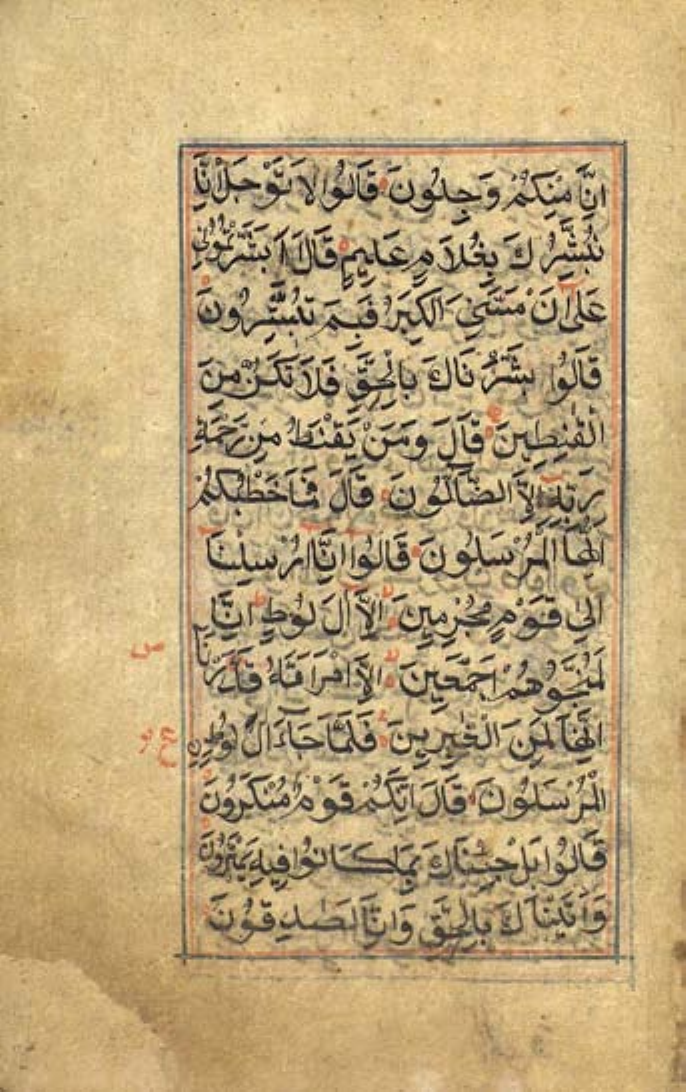 اِنَّا مِنْكُمْ وَجِلُونَ قَالُوا لَا تَوْجَلْ اِنَّا
نُبَشِّرُكَ بِغُلَامٍ عَلِيمٍ قَالَ اَبَشَّرْتُمُونِي
عَلَى اَنْ مَسَّنِيَ الْكِبَرُ فَبِمَ تُبَشِّرُونَ
قَالُوا بَشَّرْنَاكَ بِالْحَقِّ فَلَا تَكُنْ مِنَ
الْقٰنِطِينَ قَالَ وَمَنْ يَقْنَطُ مِنْ رَحْمَةِ
رَبِّهِ اِلَّا الضَّآلُّونَ قَالَ فَمَا خَطْبُكُمْ
اَيُّهَا الْمُرْسَلُونَ قَالُوا اِنَّا اُرْسِلْنَا
اِلَى قَوْمٍ مُجْرِمِينَ اِلَّا اٰلَ لُوطٍ اِنَّا
لَمُنَجُّوهُمْ اَجْمَعِينَ اِلَّا امْرَاَتَهُ قَدَّرْنَا
اِنَّهَا لَمِنَ الْغٰبِرِينَ فَلَمَّا جَآءَ اٰلَ لُوطٍ نِ
الْمُرْسَلُونَ قَالَ اِنَّكُمْ قَوْمٌ مُنْكَرُونَ
قَالُوا بَلْ جِئْنَاكَ بِمَا كَانُوا فِيهِ يَمْتَرُونَ
وَاَتَيْنَاكَ بِالْحَقِّ وَاِنَّا لَصٰدِقُونَ